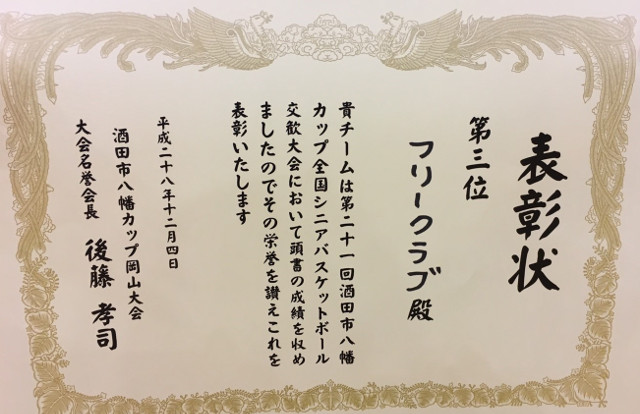 表彰状
第三位
フリークラブ殿
貴チームは第二十一回酒田市八幡
カップ全国シニアバスケットボール
交歓大会において頭書の成績を収め
ましたのでその栄誉を讃えこれを
表彰いたします
平成二十八年十二月四日
酒田市八幡カップ岡山大会
大会名誉会長 後藤孝司